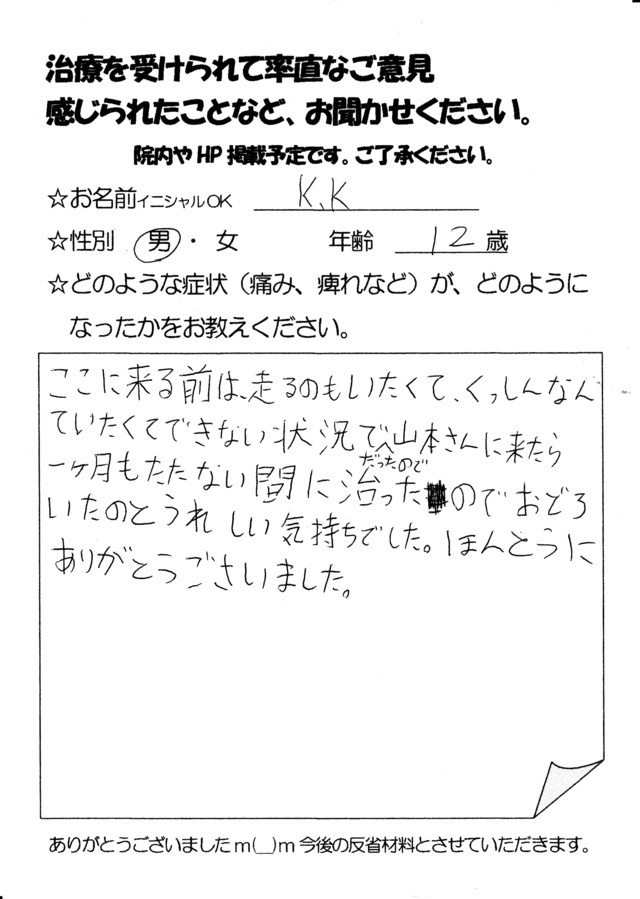 治療を受けられて率直なご意見
感じられたことなど、お聞かせください。
院内やHP掲載予定です。ご了承ください。
☆お名前イニシャルOK K.K
☆性別 男・女 年齢 12歳
☆どのような症状（痛み、痺れなど）が、どのように
なったかをお教えください。
ここに来る前は、走るのもいたくて、くっしんなん
ていたくてできない状況で山本さんに来たら
だったので
一ヶ月もたたない間に治ったのでおどろ
いたのとうれしい気持ちでした。ほんとうに
ありがとうございました。
ありがとうございましたm(__)m今後の反省材料とさせていただきます。